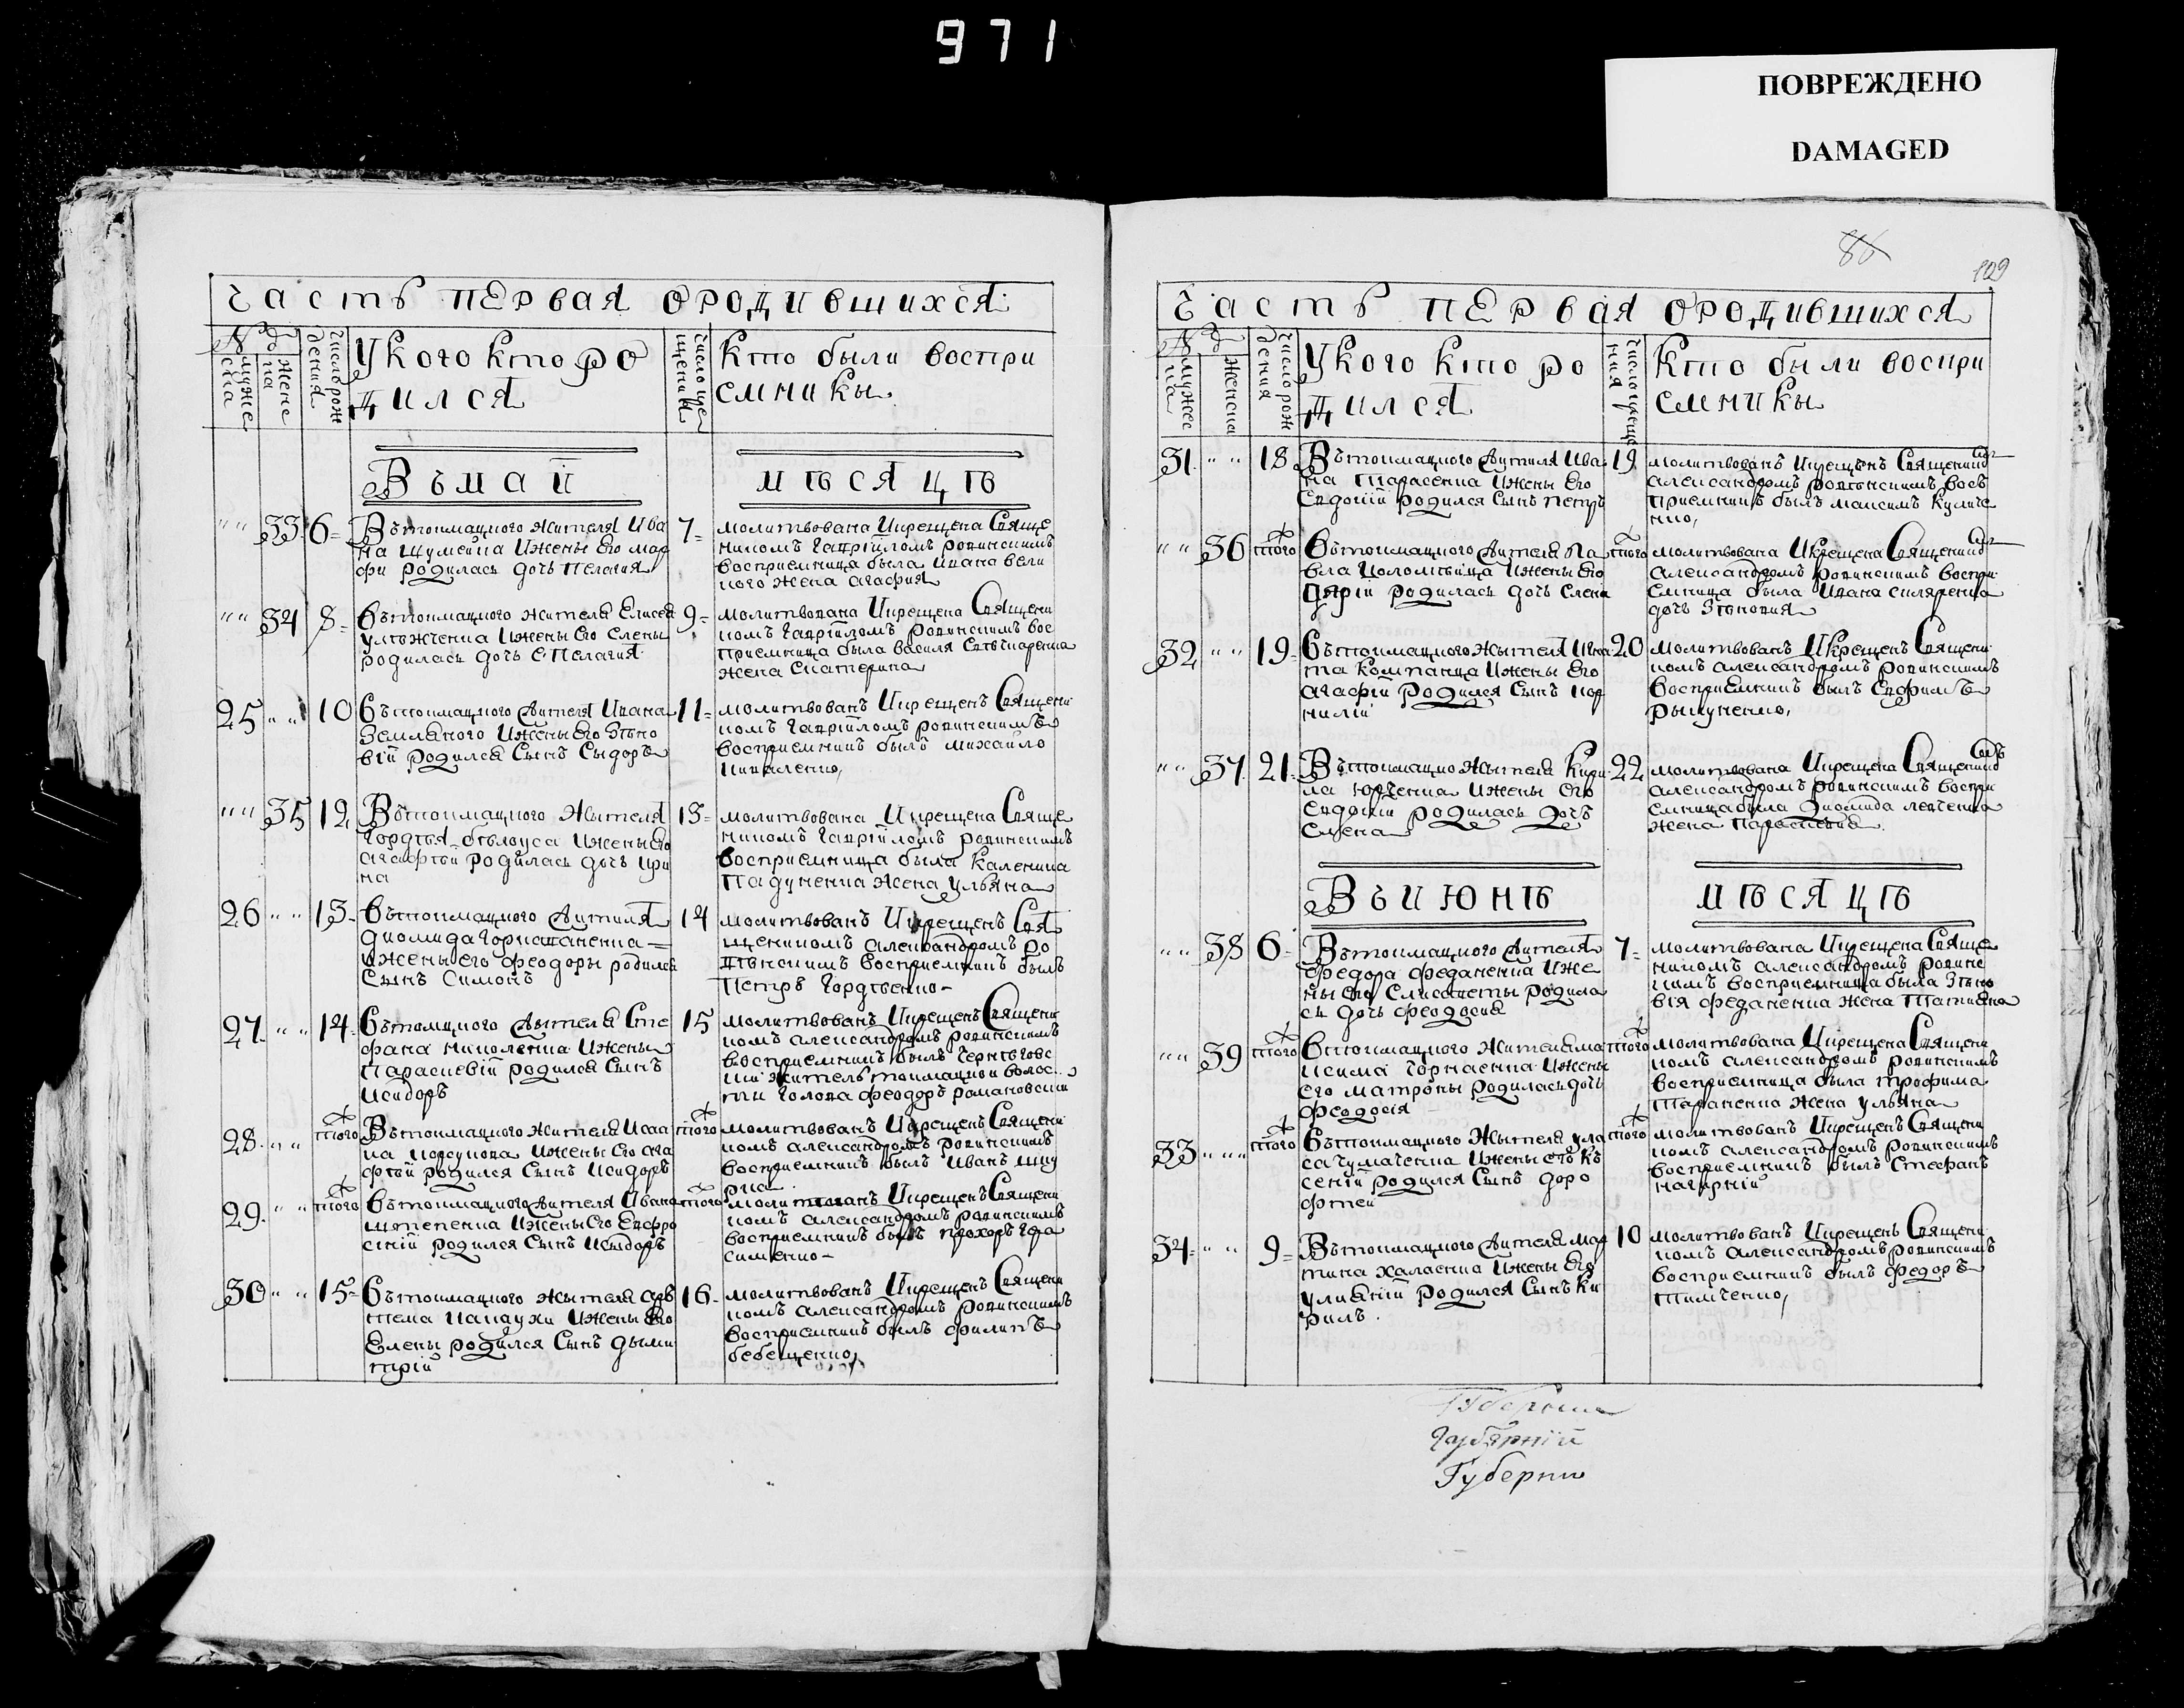 971
ПОВРЕЖДЕНО
DAMAGED
86
109
Часть первая ородившихся
№
муже
ска
жене
ка
число рож
дения
Укого кто ро
дился
число кре
щения
Кто были воспри
емники
Въ май
мѣсяцѣ
" " 33 6
Вътоимацкого жителя Ива
на Шумейка ижены его мар
фи родилась дочь Пелагия
7
молитвована икрещена Свяще
никомъ Гаврііломъ ровинскимъ
восприемница была ивана вели
кого жена агафия
" " 34 8
вътоимацкого жителя Елисея
ижены его Елены
родилась дочь Пелагия
9
молитвована икрещена Священи
комъ Гаврііломъ ровинскимъ вос
приемница была василя
жена Екатерина
25 " " 10
вътоимацкого жителя Ивана
Земляного ижены его Зѣно
вій родился Сынъ Сыдоръ
11
молитвованъ икрещенъ Священи
комъ Гаврііломъ ровинскимъ
восприемникъ былъ михайло
" " 35 12
Вътоимацкого жителя
Гордѣя бѣлоуса ижены его
агафтеи родилась дочь ири
на
13
молитвована икрещена Свяще
никомъ Гаврііломъ ровинскимъ
восприемница была каленика
Падученка жена ульяна
26 " " 13
вътоимацкого жителя
диомида
ижены его феодоры родился
Сынъ Симонъ
14
молитвованъ икрещенъ Свя
щеникомъ александромъ ро
винскимъ восприемникъ былъ
Петръ Гордѣенко
27 " " 14
вътоимцкого жителя Сте
фана николенка ижены
Параскевій родился Сынъ
исидоръ
15
молитвованъ икрещенъ Священи
комъ александромъ ровинскимъ
восприемникъ былъ
кій житель тоимацкой волос
ти голова феодоръ романовский
28 " " того
Вътоимацкого жителя исаа
ка корсунова ижены его ага
фтеи родился Сынъ исидоръ
того
молитвованъ икрещенъ Священи
комъ александромъ ровинскимъ
восприемникъ былъ Иванъ шку
рка
29 " " того
вътоимацкого жителя Ивана
штепенка ижены его Евфро
синій родился Сынъ исыдоръ
того
молитвованъ икрещенъ Священи
комъ александромъ ровинскимъ
восприемникъ былъ прохоръ гера
сименко
30 " " 15
вътоимацкого жытеля арь
тема ижены его
Елены родился Сынъ дыми
трій
16
молитвованъ икрещенъ Священи
комъ александромъ ровинскимъ
восприемникъ былъ филипъ
бебещенко
Часть первая ородившихся
№
мужес
ка
женска
число рож
дения
Укого кто ро
дился
число креще
ния
Кто были воспри
емникы
31 " " 18
Вътоимацкого жителя Ива
на Тарасенка ижены его
Евдокіи родился Сынъ петръ
19
молитвованъ икрещенъ Священико
александромъ ровѣнскимъ вось
приемникъ былъ максимъ куличе
нко
" " 36 того
вътоимацкого жителя Па
вла коломѣйца ижены его
дарій родилась дочь Елена
того
молитвована икрещена Священико
александромъ ровинскимъ воспри
емница была ивана скляренка
дочь Зѣновия
32 " " 19
вътоимацкого жытеля Ики
та Компанца ижены его
агафій родился Сынъ кор
нилій
20
молитвованъ икрещенъ Священи
комъ александромъ ровинскимъ
восприемникъ былъ Евфимъ
" " 37 21
Вътоимацко жытеля кири
ла юрченка ижены его
Евдокій родилась дочь
Елена
22
молитвована икрещена Священико
александромъ ровинскимъ воспри
емница была диомида левченка
жена параскевия
Въ июнѣ
мѣсяцѣ
" " 38 6
Вътоимацкого жителя
федора феданенка иже
ны его Елисаветы родила
сь дочь феодосия
7
молитвована икрещена Свяще
никомъ александромъ ровинс
кимъ восприемница была Зѣно
вія феданенка жена Татияна
" " 39 того
втоимацкого жителя ма
ксима ижены
его матроны родилась дочь
феодосія
того
молитвована икрещена Священи
комъ александромъ ровинскимъ
восприемница была трофима
Тараненка жена ульяна
33 " " того
вътоимацкого жытеля ула
са чумаченка ижены его къ
сеній родился Сынъ доро
фтей
того
молитвованъ икрещенъ Священи
комъ александромъ ровинскимъ
восприемникъ былъ Стефанъ
нагарній
34 " " 9
Вътоимацкого жителя мар
тина халаенка ижены его
ульяній родился Сынъ ки
рилъ
10
молитвованъ икрещенъ Священи
комъ александромъ ровинскимъ
восприемникъ былъ федоръ
тимченко
Губерний
Губерни